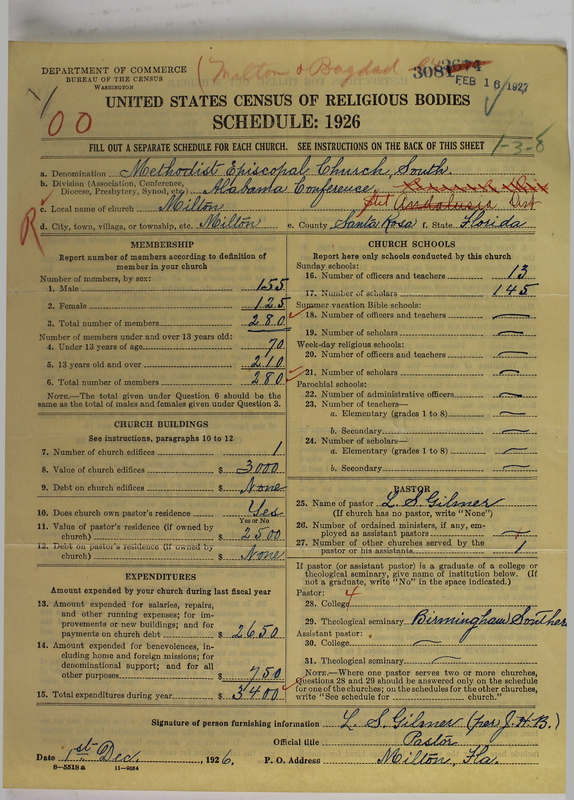 DEPARTMENT OF COMMERCE
BUREAU OF THE CENSUS
WASHINGTON
(Milton & Bagdad
3674
3081
FEB 16 1927
UNITED STATES CENSUS OF RELIGIOUS BODIES
00
SCHEDULE: 1926
FILL OUT A SEPARATE SCHEDULE FOR EACH CHURCH. SEE INSTRUCTIONS ON THE BACK OF THIS SHEET
1-3-8
a. Denomination Methodist Episcopal Church, South.
b. Division (Association, Conference, Diocese, Presbytery, Synod, etc.) Alabama Conference,
c. Local name of church Milton
Andalusia Dist
R
d. City, town, village, or township, etc. Milton e. County Santa Rosa f. State Florida
MEMBERSHIP
Report number of members according to definition of
member in your church
Number of members, by sex:
1. Male 155
2. Female 125
3. Total number of members 280
Number of members under and over 13 years old:
4. Under 13 years of age 70
5. 13 years old and over 210
6. Total number of members 280
NOTE.—The total given under Question 6 should be the
same as the total of males and females given under Question 3.
CHURCH BUILDINGS
See instructions, paragraphs 10 to 12
7. Number of church edifices 1
8. Value of church edifices $ 3000
9. Debt on church edifices $ None
10. Does church own pastor's residence Yes
Yes or No
11. Value of pastor's residence (if owned by
church) $ 2500
12. Debt on pastor's residence (if owned by
church) $ None
EXPENDITURES
Amount expended by your church during last fiscal year
13. Amount expended for salaries, repairs,
and other running expenses; for im-
provements or new buildings; and for
payments on church debt $ 2650
14. Amount expended for benevolences, in-
cluding home and foreign missions; for
denominational support; and for all
other purposes $ 750
15. Total expenditures during year $ 3400
CHURCH SCHOOLS
Report here only schools conducted by this church
Sunday schools:
16. Number of officers and teachers 13
17. Number of scholars 145
Summer vacation Bible schools:
18. Number of officers and teachers —
19. Number of scholars —
Week-day religious schools:
20. Number of officers and teachers —
21. Number of scholars —
Parochial schools:
22. Number of administrative officers —
23. Number of teachers—
a. Elementary (grades 1 to 8) —
b. Secondary —
24. Number of scholars—
a. Elementary (grades 1 to 8) —
b. Secondary —
PASTOR
25. Name of pastor L. S. Gilmer
(If church has no pastor, write "None")
26. Number of ordained ministers, if any, em-
ployed as assistant pastors —
27. Number of other churches served by the
pastor or his assistants 1
If pastor (or assistant pastor) is a graduate of a college or
theological seminary, give name of institution below. (If
not a graduate, write "No" in the space indicated.)
Pastor: 4
28. College
29. Theological seminary Birmingham Southern
Assistant pastor:
30. College —
31. Theological seminary —
NOTE.—Where one pastor serves two or more churches,
Questions 28 and 29 should be answered only on the schedule
for one of the churches; on the schedules for the other churches,
write "See schedule for ........ church."
Signature of person furnishing information L. S. Gilmer (per J. H. B.)
Official title Pastor
Date 1st Dec., 1926. P. O. Address Milton, Fla.
8—5518a 11—9064